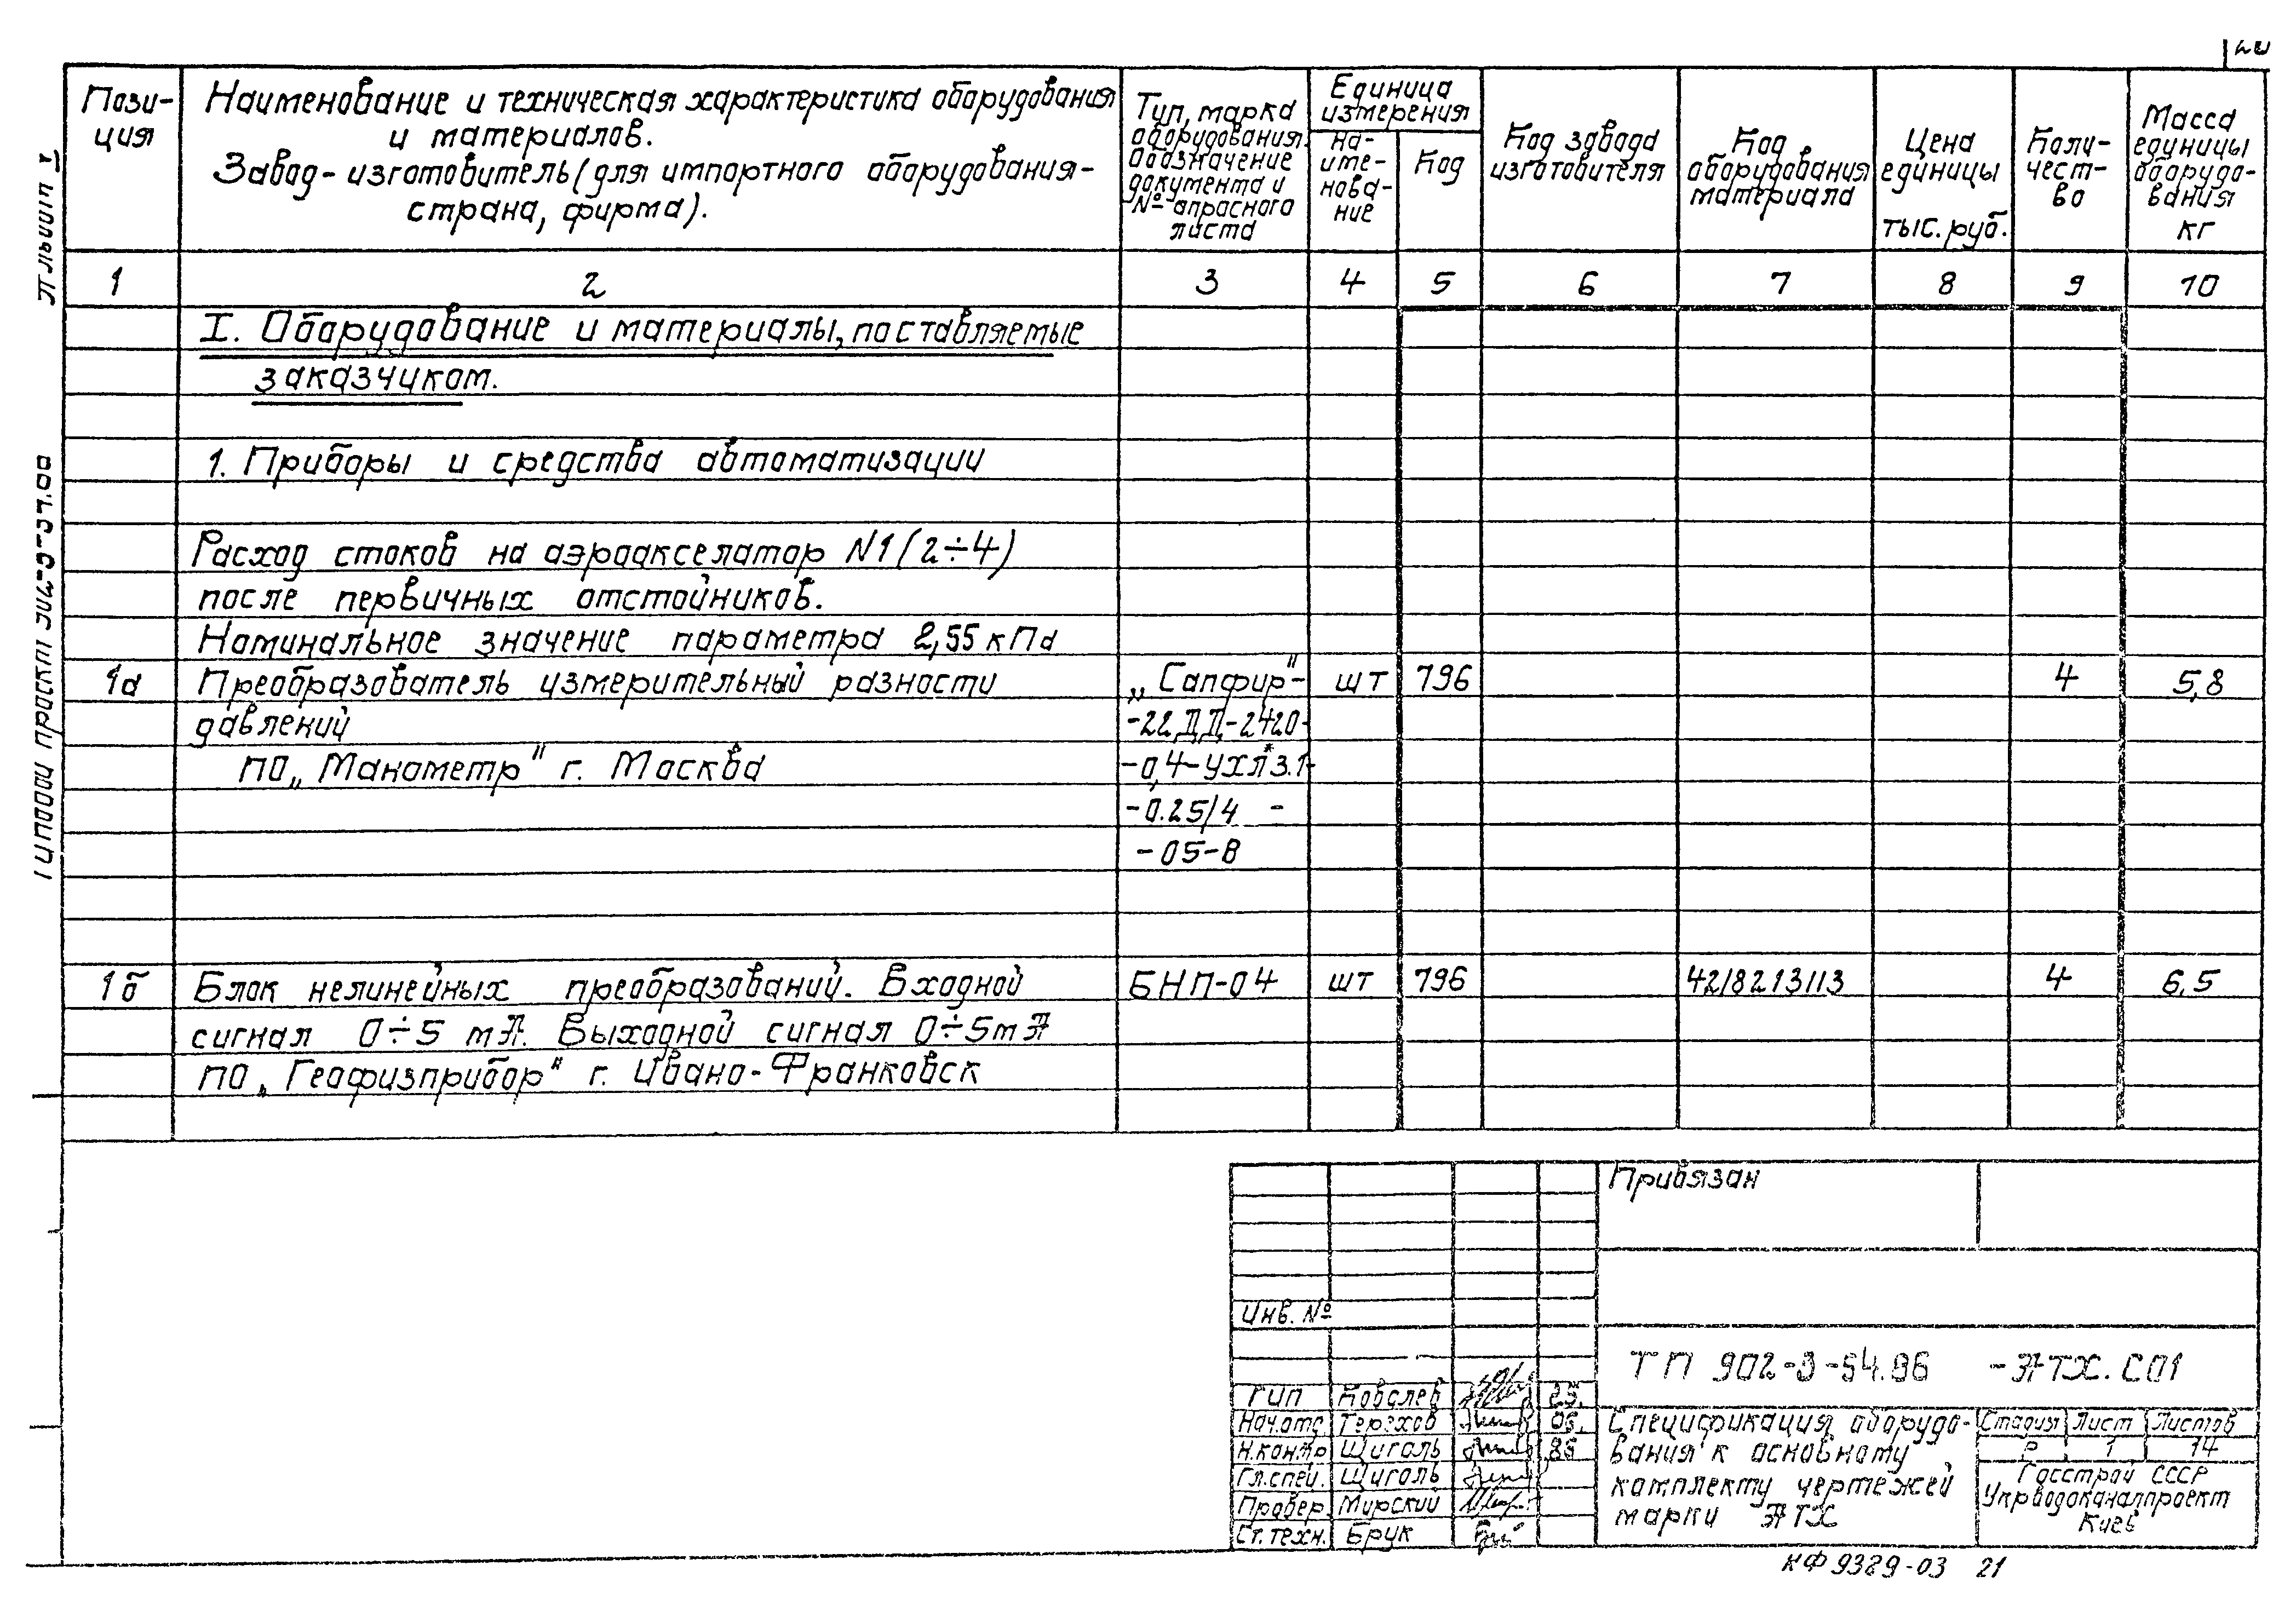 Пози-
ция
Наименование и техническая характеристика оборудования
и материалов.
Завод-изготовитель (для импортного оборудования-
страна, фирма).
Тип, марка
оборудования.
Обозначение
документа и
№ опросного
листа
Единица
измерения
на-
име-
нова-
ние
Код
Код завода
изготовителя
Код
оборудования
материала
Цена
единицы
тыс. руб.
Коли-
чест-
во
Масса
единицы
оборудо-
вания
кг
1 2 3 4 5 6 7 8 9 10
I. Оборудование и материалы, поставляемые
заказчиком.
1. Приборы и средства автоматизации
Расход стоков на аэроакселатор N1 (2÷4)
после первичных отстойников.
Номинальное значение параметра 2,55 кПа
1а Преобразователь измерительный разности „Сапфир"- шт 796 4 5,8
давлений -22ДД-2420-
ПО „Манометр" г. Москва -0,4-УХЛ*3.1-
-0.25/4 -
-05-В
1б Блок нелинейных преобразований. Входной БНП-04 шт 796 4218213113 4 6,5
сигнал 0÷5 mA. Выходной сигнал 0÷5mA
ПО „Геофизприбор" г. Ивано-Франковск
Привязан
Инв. №
ТП 902-3-54.86 -АТХ.СО1
ГИП Ковалев
Нач.отд. Терехов 06.
Н.контр Щиголь 86
Гл.спец. Щиголь
Провер. Мирский
Ст.техн. Брук
Спецификация оборудо-
вания к основному
комплекту чертежей
марки АТХ
Стадия Лист Листов
Р 1 14
Госстрой СССР
Укрводоканалпроект
Киев
КФ 9389-03 21